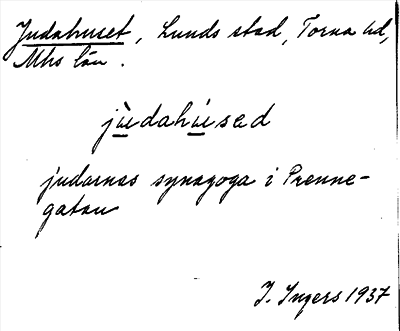 Judahuset, Lunds stad, Torna hd,
Mhs län.
jùdahúsed
judarnas synagoga i Prenne-
gatan
I. Ingers 1937